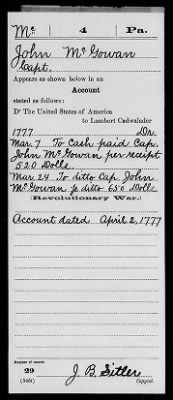 Mc 4 Pa.
John McGowan
Capt.
Appears as shown below in an
Account
stated as follows:
Dr The United States of America
to Lambert Cadwalader
1777 Dr.
Mar. 7 To Cash paid Cap.
John McGowan per receipt
520 Dolls.
Mar 24 To ditto Cap. John
McGowan ditto 650 Dolls
(Revolutionary War.)
Account dated April 2, 1777
Number of record:
29
J. B. Sitler
Copyist.